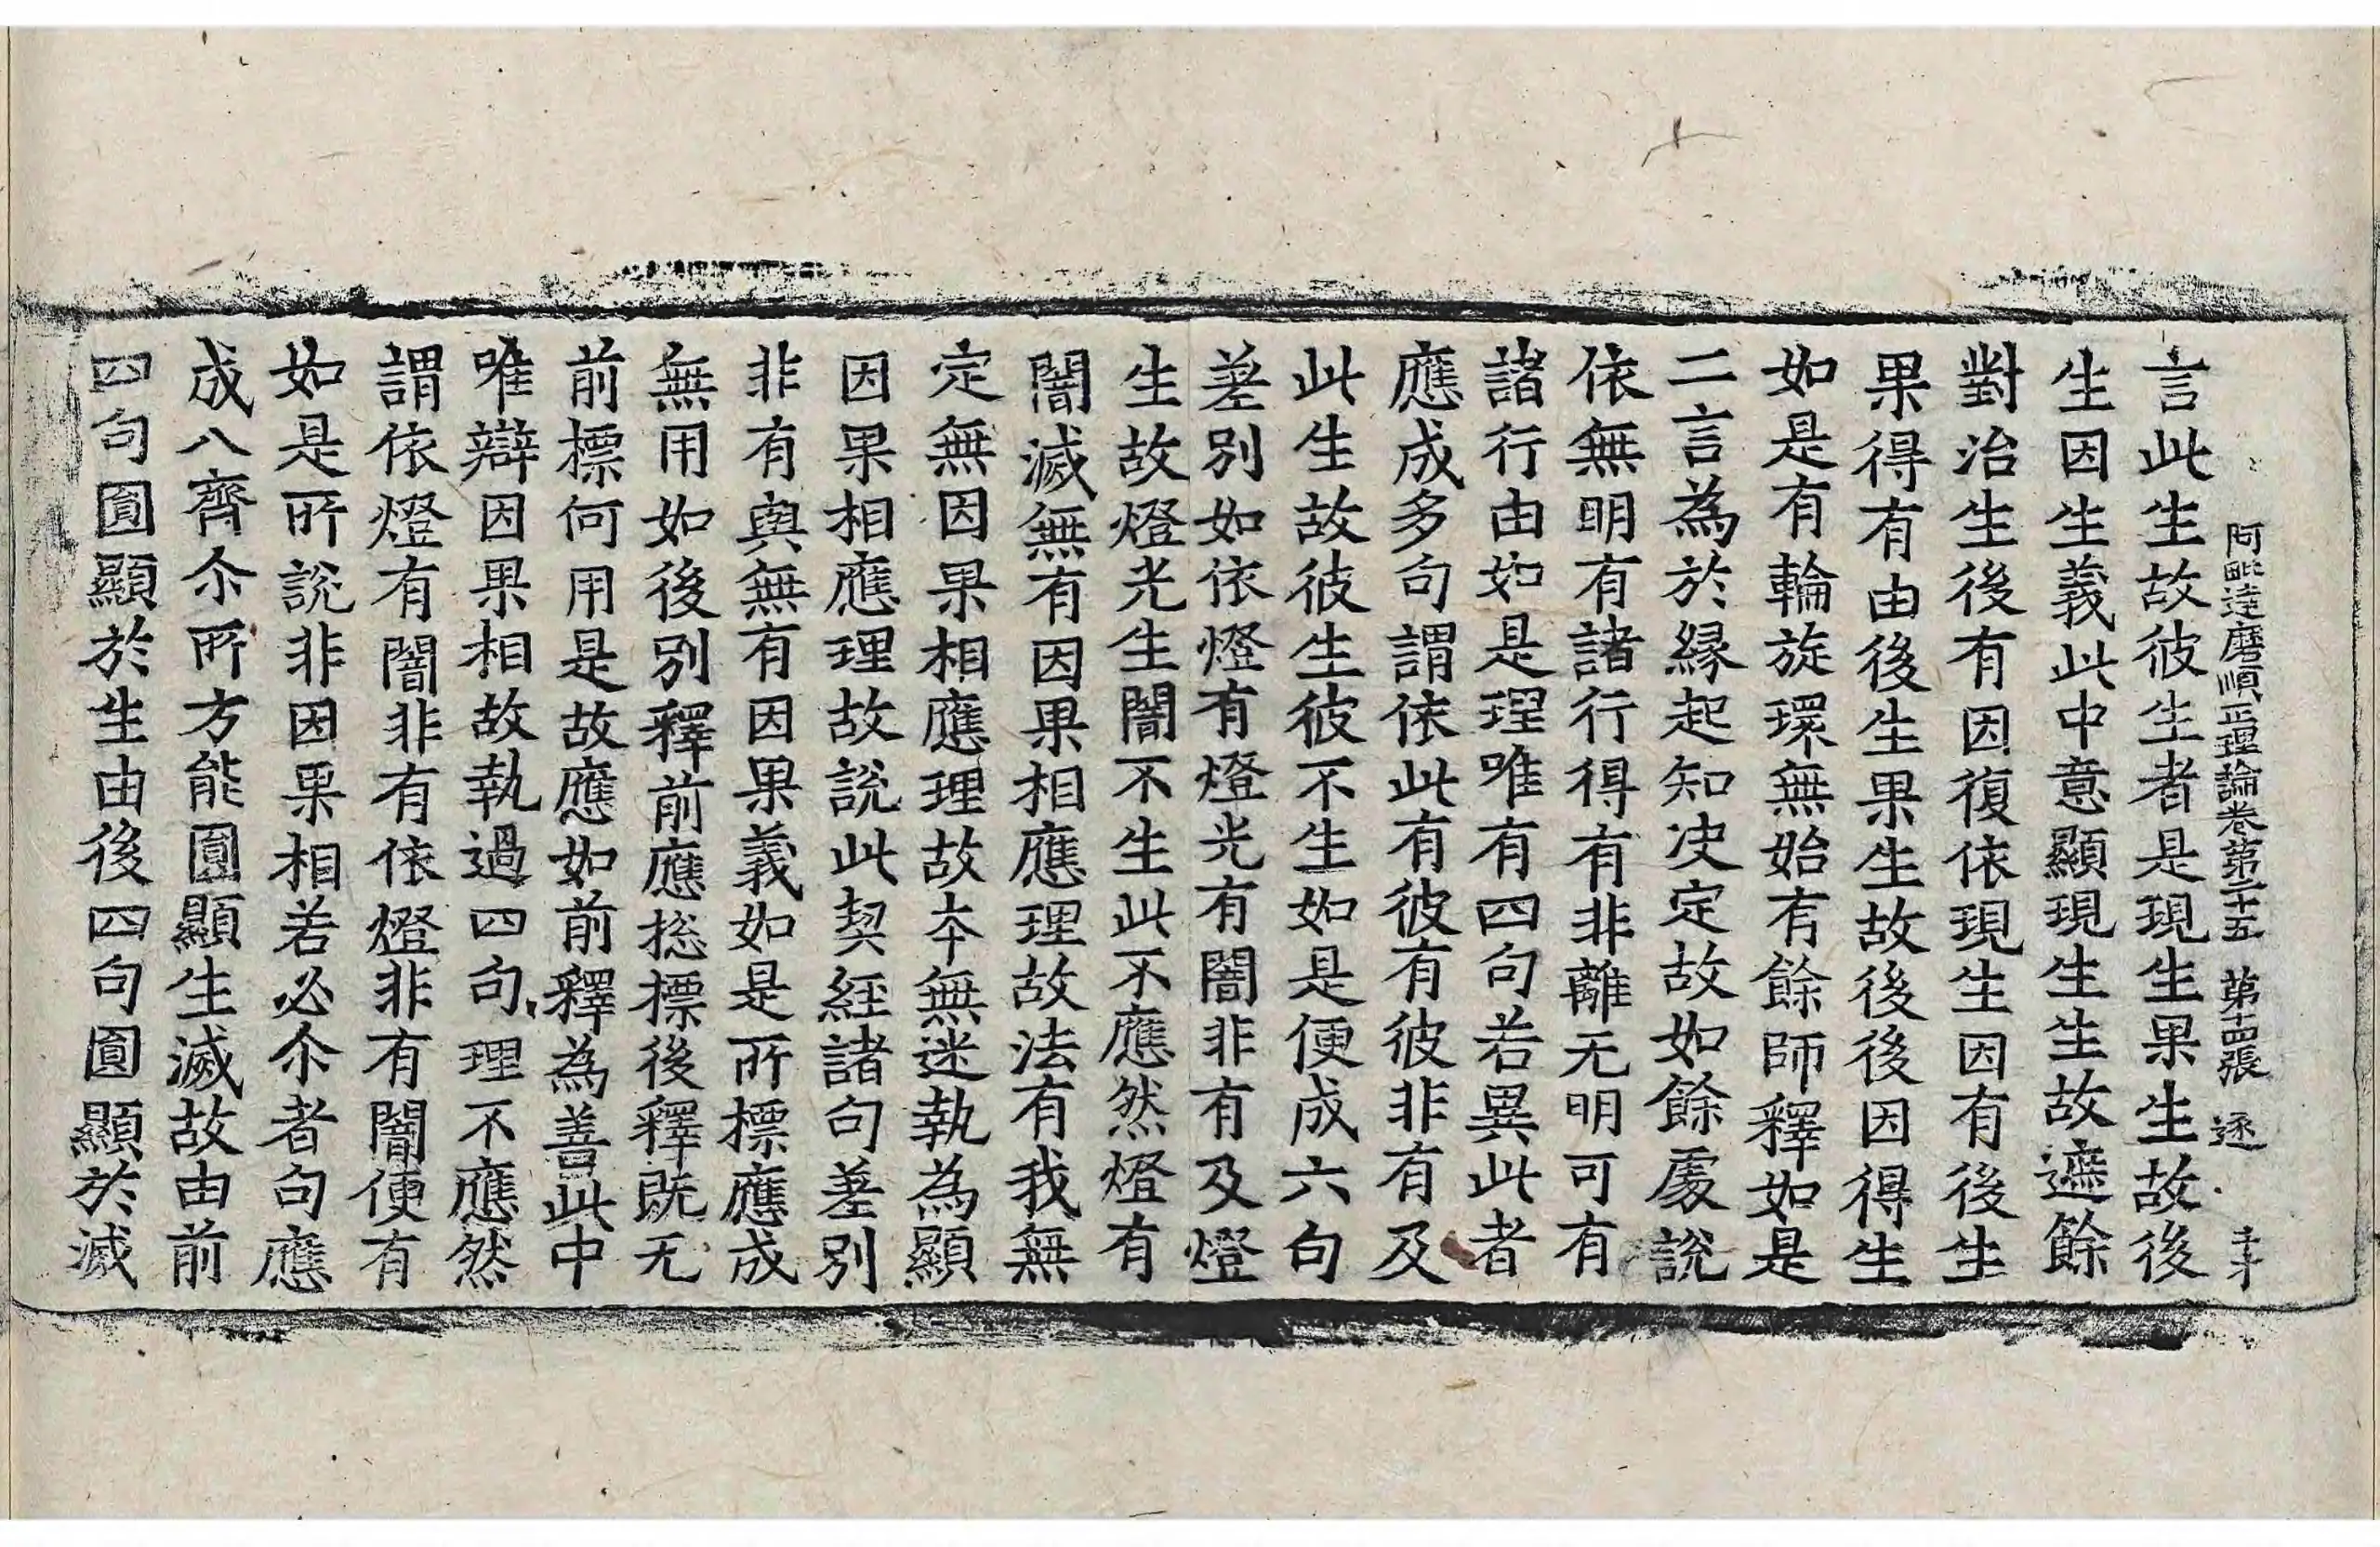 阿毗達磨順正理論卷第二十五　第十四張　逐
言此生故彼生者是現生果生故後
生因生義此中意顯現生生故遮餘
對治生後有因復依現生因有後生
果得有由後生果生故後後因得生
如是有輪旋環無始有餘師釋如是
二言為於緣起知決定故如餘處說
依無明有諸行得有非離无明可有
諸行由如是理唯有四句若異此者
應成多句謂依此有彼有彼非有及
此生故彼生彼不生如是便成六句
差別如依燈有燈光有闇非有及燈
生故燈光生闇不生此不應然燈有
闇滅無有因果相應理故法有我無
定無因果相應理故夲無迷執為顯
因果相應理故說此契経諸句差別
非有與無有因果義如是所標應成
無用如後別釋前應捴標後釋既无
前標何用是故應如前釋為善此中
唯辯因果相故執過四句理不應然
謂依燈有闇非有依燈非有闇便有
如是所說非因果相若必尒者句應
成八齊尒所方能圓顯生滅故由前
四句圓顯於生由後四句圓顯於滅